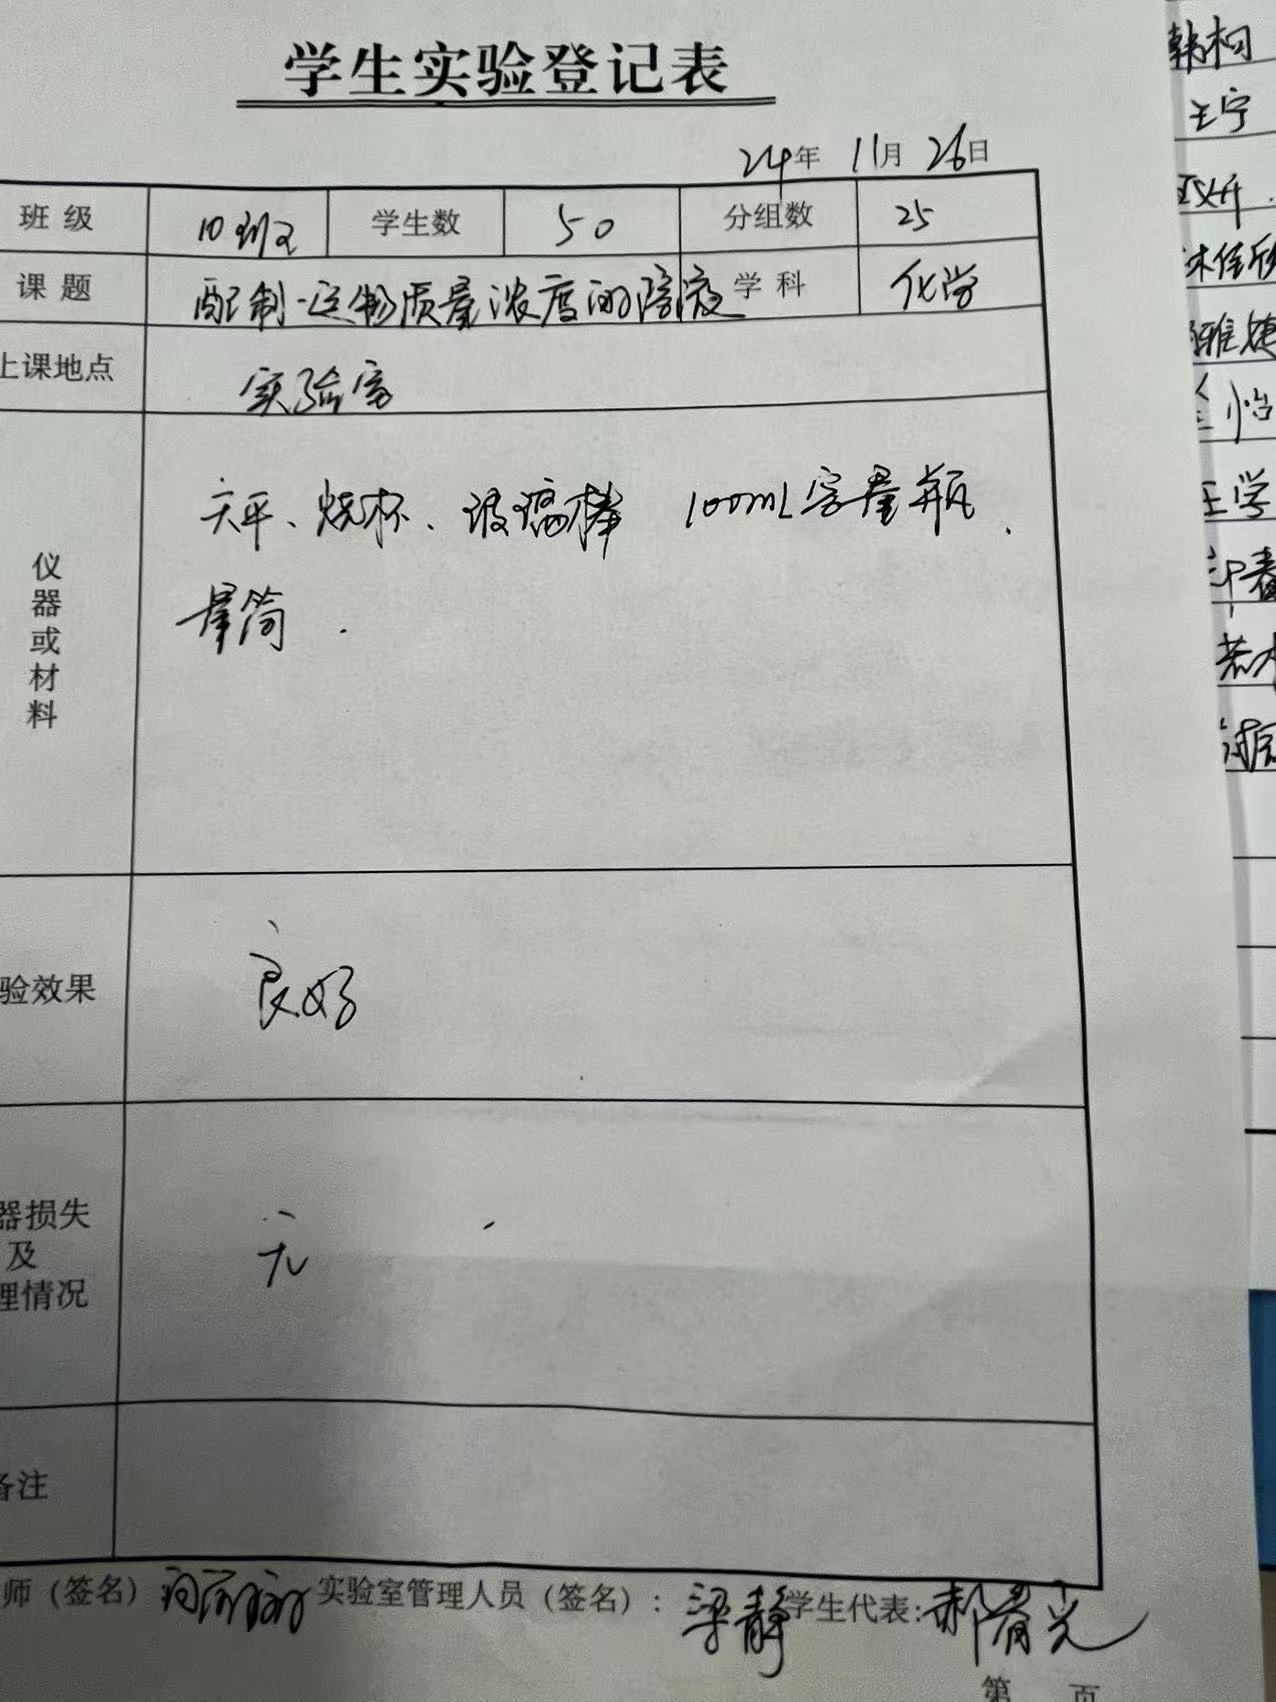 学生实验登记表
24年 11月 26日
班级 10班 学生数 50 分组数 25
课题 配制一定物质量浓度的溶液 学科 化学
上课地点 实验室
仪器或材料 天平、烧杯、玻璃棒 100mL容量瓶、
量筒.
验效果 良好
器损失
及 无
理情况
备注
师（签名） 实验室管理人员（签名）：梁静 学生代表：郝春光
第 页
韩柯
王宁
雅婕
怡
王学
春